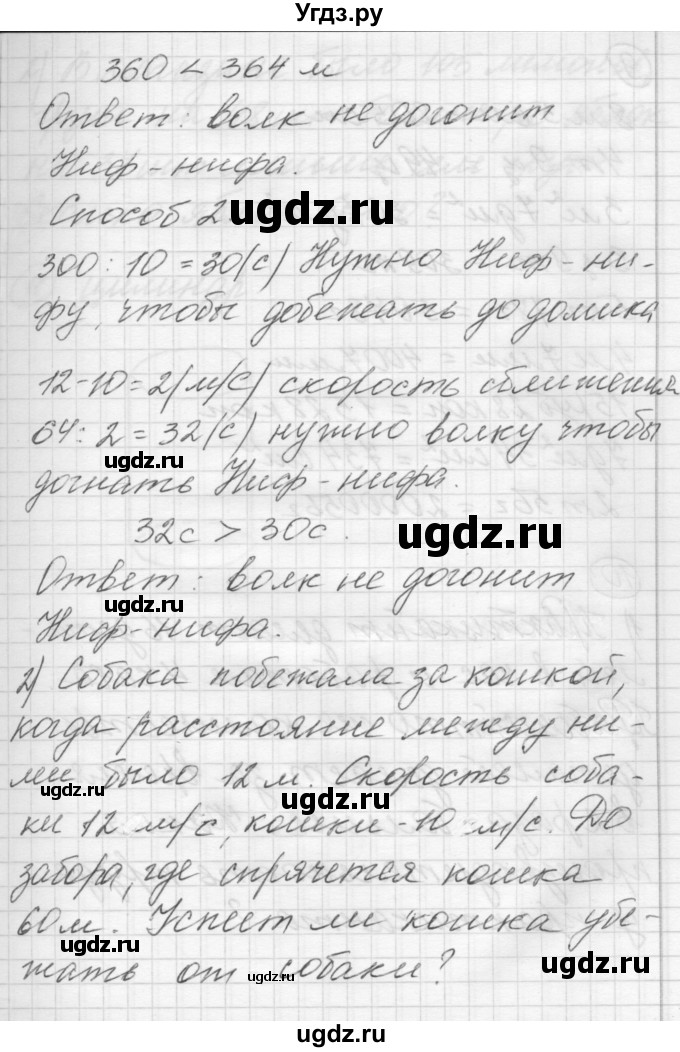 Угдз.ру
360 < 364 м
Ответ: волк не догонит
Ниф-нифа.
Способ 2
ugdz.ru
300 : 10 = 30(с) Нужно Ниф-ни-
фу, чтобы добежать до домика
12-10=2(м/с) скорость сближения
64 : 2 = 32(с) нужно волку чтобы
ugdz.ru
догнать Ниф-нифа.
32с > 30с.
ugdz.ru
Ответ: волк не догонит
ugdz.ru
Ниф-нифа.
ugdz.ru
2) Собака побежала за кошкой,
когда расстояние между ни-
ми было 12 м. Скорость соба-
ugdz.ru
ugdz.ru
ки 12 м/с, кошки-10 м/с. До
забора, где спрячется кошка
60м. Успеет ли кошка убе-
ugdz.ru
ugdz.ru
жать от собаки?
ugdz.ru
ugdz.ru